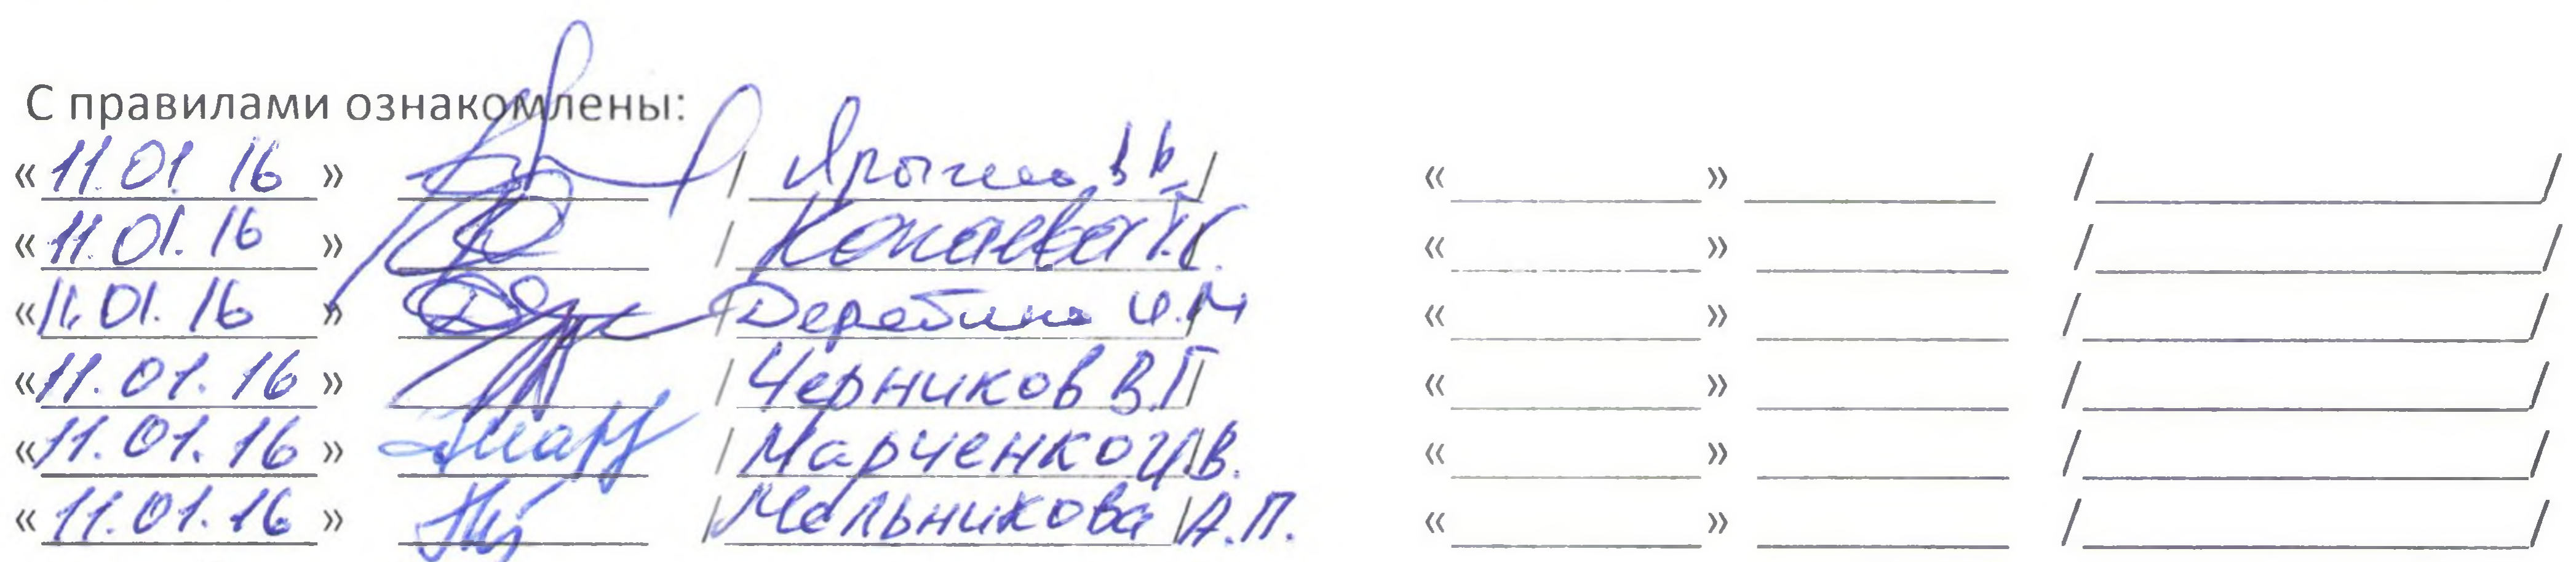 С правилами ознакомлены:
«11.01 16» / В В /
«11.01.16» / Конаева Т.С.
«11.01.16» / Дерябина И.М
«11.01.16» / Черников В.Г /
«11.01.16» / Марченко И.В.
«11.01.16» / Мельникова А.П.
« » / /
« » / /
« » / /
« » / /
« » / /
« » / /